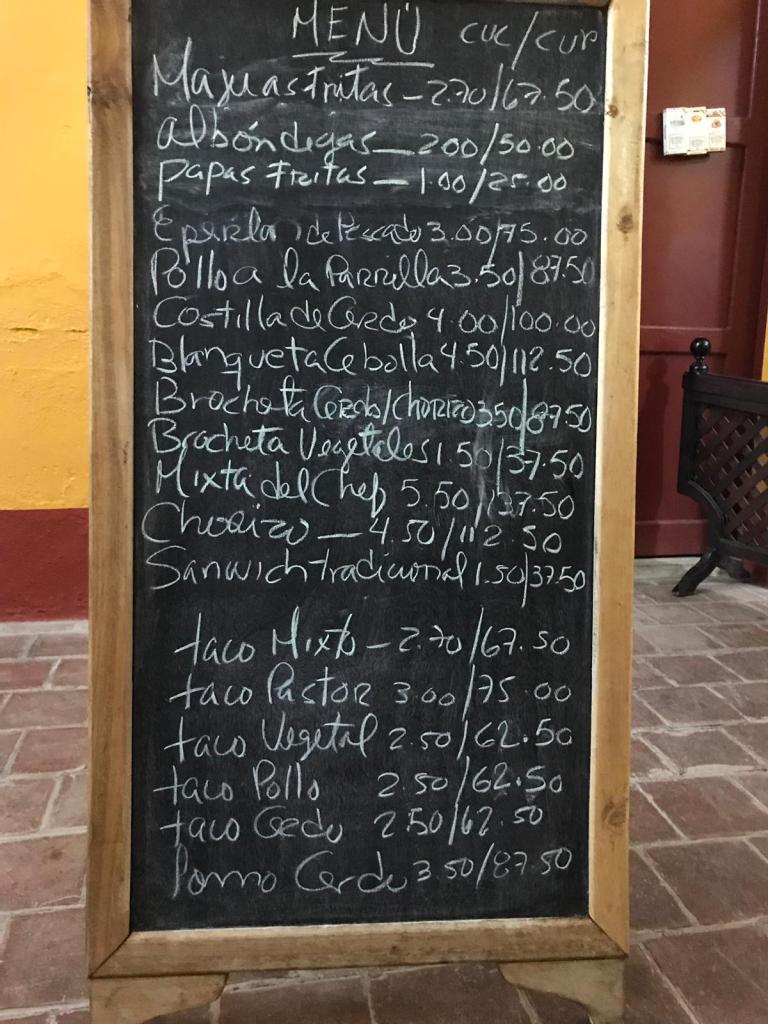 MENÚ CUC/CUP
Majuas Fritas - 2.70/67.50
albóndigas - 200/50.00
papas Fritas - 1.00/25.00
de Pescado 3.00/75.00
Pollo a la Parrilla 3.50/87.50
Costilla de Cerdo 4.00/100.00
Blanqueta Cebolla 4.50/112.50
Brocheta Cerdo/Chorizo 350/87.50
Brocheta Vegetales 1.50/37.50
Mixta del Chef 5.50/
Chorizo - 4.50/112.50
Sanwich tradicional 1.50/37.50
taco Mixto - 2.70/67.50
taco Pastor 3.00/75.00
taco Vegetal 2.50/62.50
taco Pollo 2.50/62.50
taco Cerdo 2.50/62.50
Cerdo 3.50/87.50